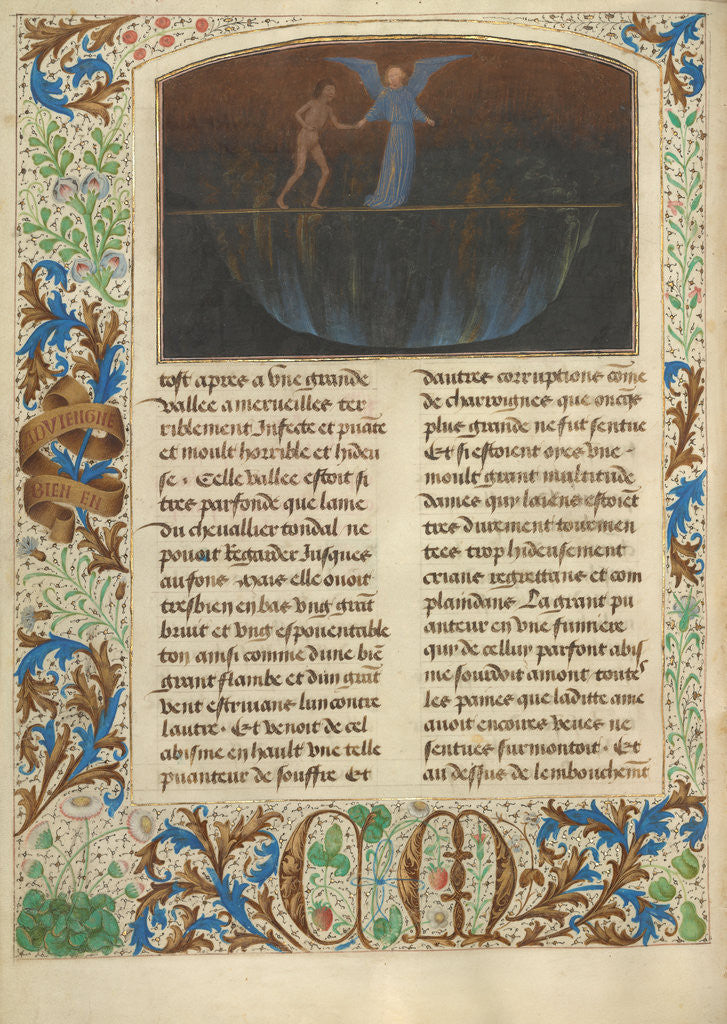 ADVIENGNE
BIEN EN
tost apres a vne grande
vallee a merueilles ter
riblement Infecte et puāte
et moult horrible et hideu
se. Celle vallee estoit si
tres parfonde que lame
du cheuallier tondal ne
pouoit Regarder Jusques
au fons Mais elle ouoit
tresbien en bas vng grāt
bruit et vng espouentable
ton ainsi comme dune biē
grant flambe et dun grāt
vent estriuans lun contre
lautre. Et venoit de cel
abisme en hault vne telle
puanteur de souffre Et
dautres corruptions cōme
de charroignes que oncqs
plus grande ne fut sentue
Et si estoient oyes vne
moult grant multitude
dames quy laiens estoiēt
tres durement tourmen
tees trop hydeusement
crians regrettans et com
plaindans La grant pu
anteur en vne fumiere
quy de celluy parfont abis
me sourdoit amont toutes
les paines que laditte ame
auoit encores veues ne
senties surmontoit. Et
au dessus de lembouchemt
C M